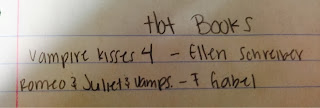 tbt Books
Vampire Kisses 4 - Ellen Schreiber
Romeo & Juliet & Vamps. - Gabel